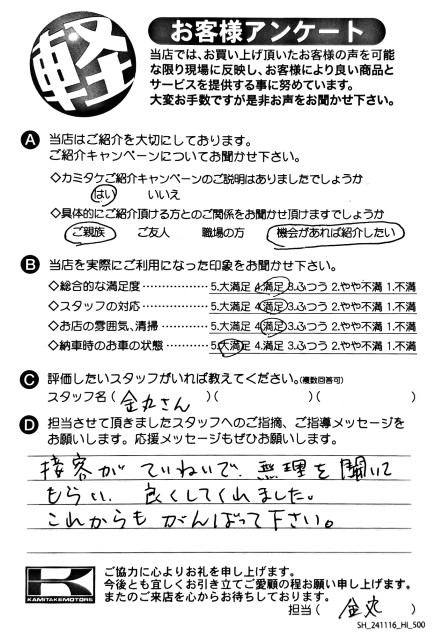 軽
お客様アンケート
当店では、お買い上げ頂いたお客様の声を可能
な限り現場に反映し、お客様により良い商品と
サービスを提供する事に努めています。
大変お手数ですが是非お声をお聞かせ下さい。
A 当店はご紹介を大切にしております。
ご紹介キャンペーンについてお聞かせ下さい。
◇カミタケご紹介キャンペーンのご説明はありましたでしょうか
はい いいえ
◇具体的にご紹介頂ける方とのご関係をお聞かせ頂けますでしょうか
ご親族 ご友人 職場の方 機会があれば紹介したい
B 当店を実際にご利用になった印象をお聞かせ下さい。
◇総合的な満足度……………… 5.大満足 4.満足 3.ふつう 2.やや不満 1.不満
◇スタッフの対応……………… 5.大満足 4.満足 3.ふつう 2.やや不満 1.不満
◇お店の雰囲気、清掃………… 5.大満足 4.満足 3.ふつう 2.やや不満 1.不満
◇納車時のお車の状態………… 5.大満足 4.満足 3.ふつう 2.やや不満 1.不満
C 評価したいスタッフがいれば教えてください。(複数回答可)
スタッフ名( 金丸さん )( )( )
D 担当させて頂きましたスタッフへのご指摘、ご指導メッセージを
お願いします。応援メッセージもぜひお願いします。
接客が ていねいで 無理を聞いて
もらい、良くしてくれました。
これからも がんばって下さい。
KAMITAKEMOTORS
ご協力に心よりお礼を申し上げます。
今後とも宜しくお引き立てご愛顧の程お願い申し上げます。
またのご来店を心からお待ちしております。
担当( 金丸 )
SH_241116_HI_500